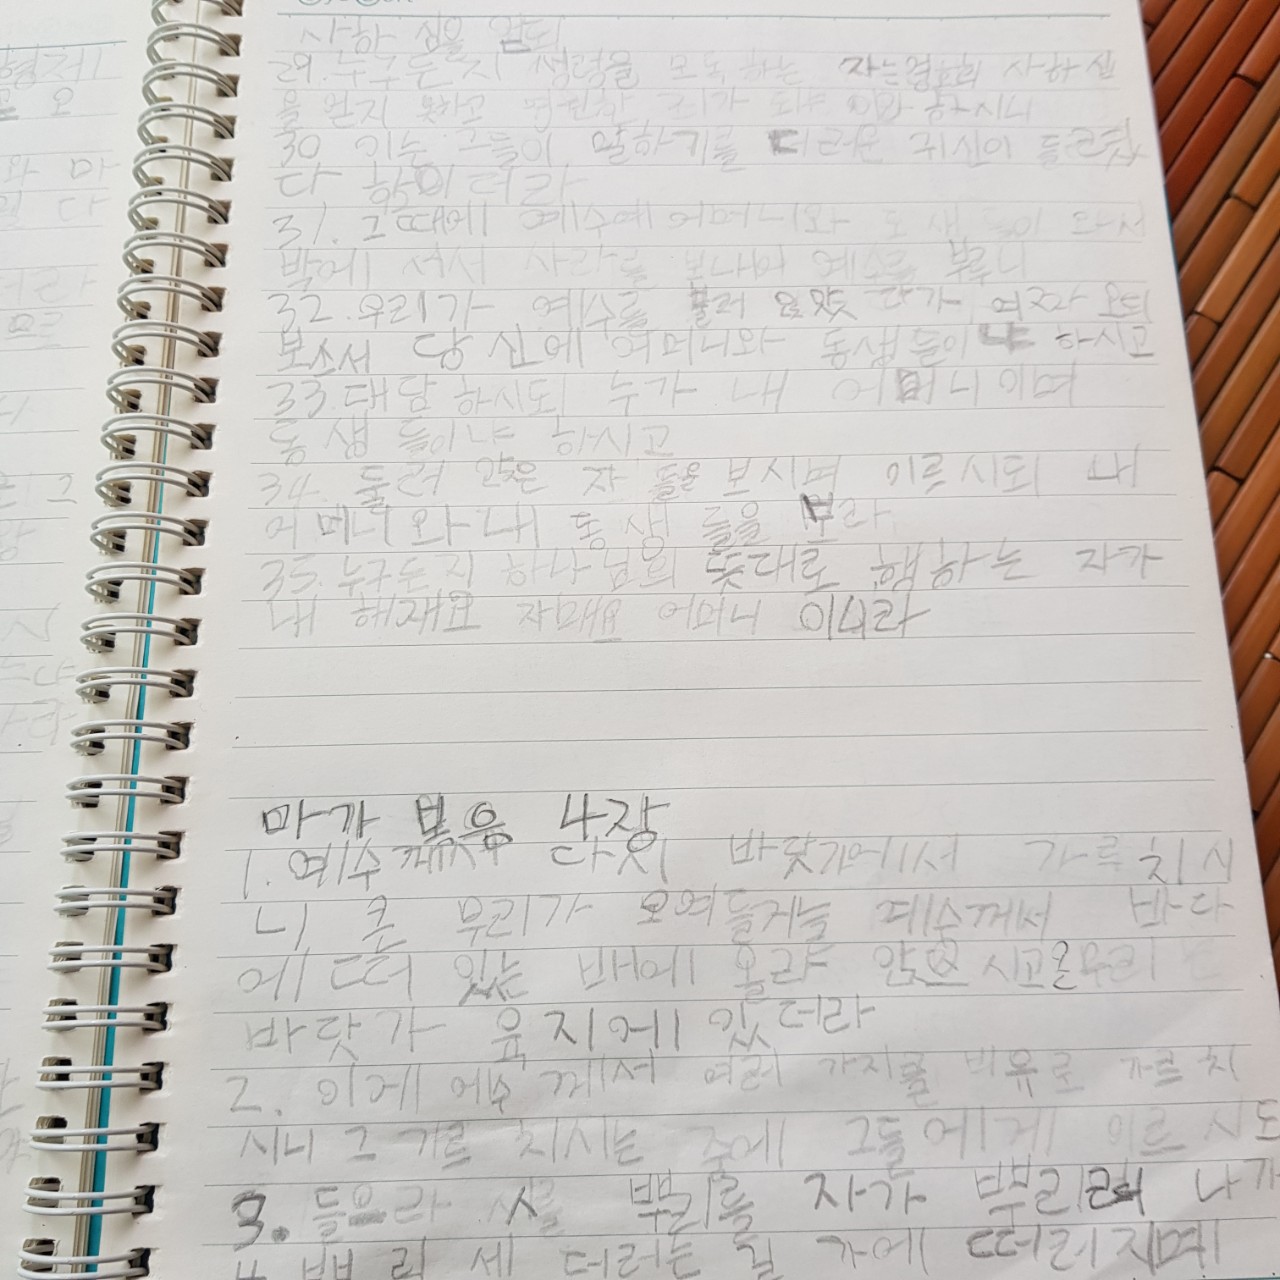 사하심을 얻되
29. 누구든지 성령을 모독하는 자는 영원히 사하심
을 얻지 못하고 영원한 죄가 되느니라 하시니
30 이는 그들이 말하기를 더러운 귀신이 들렸
다 함이러라
31. 그때에 예수에 어머니와 동생들이 와서
밖에 서서 사람을 보내어 예수를 부르니
32. 무리가 예수를 둘러 앉았다가 여자오되
보소서 당신에 어머니와 동생들이 하시고
33. 대답하시되 누가 내 어머니이며
동생들이냐 하시고
34. 둘러 앉은 자들을 보시며 이르시되 내
어메니와 내 동생들을 보라
35. 누구든지 하나님의 뜻대로 행하는 자가
내 형재요 자매요 어머니 이니라
마가 복음 4장
1. 예수께서 다시 바닷가에서 가르치시
니 큰 무리가 모여들거늘 예수께서 바다
에 떠 있는 배에 올라 앉으시고 온무리는
바닷가 육지에 있더라
2. 이에 예수께서 여러가지를 비유로 가르치
시니 그 가르치시는 중에 그들에게 이르시되
3. 들으라 씨를 뿌리를 자가 뿌리러 나가
4. 뿌릴세 더러는 길가에 떠러지며